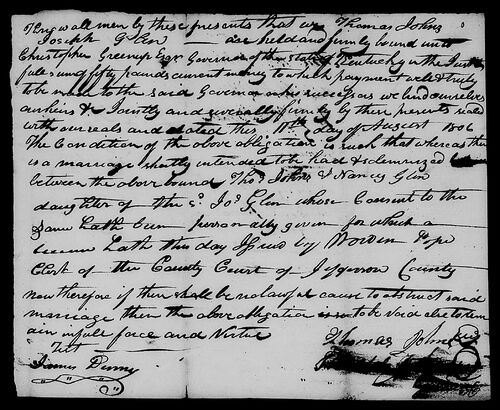 Know all men by these presents that we Thomas Johns
Joseph Glen are held and firmly bound unto
Christopher Greenup Esqr Governor of the state of Kentucky in the Just &
full sum of fifty pounds current money to which payment well & truly
to be made to the said Governor or his successors we bind ourselves
our heirs &c Jointly and severally firmly by these presents sealed
with our seals and dated this day of August 1806
The Condition of the above obligation is such that whereas there
is a marriage shortly intended to be had & solemnized
between the above bound Thos Johns & Nancy Glen
daughter of the sd Jos Glen whose Consent to the
Same hath been personally given for which a
license hath this day Issued by Worden Pope
Clerk of the County Court of Jefferson County
now therefore if there shall be no lawful cause to obstruct said
marriage then the above obligation is to be void else to rem
ain in full force and Virtue
Test
Thomas Johns
James Denny